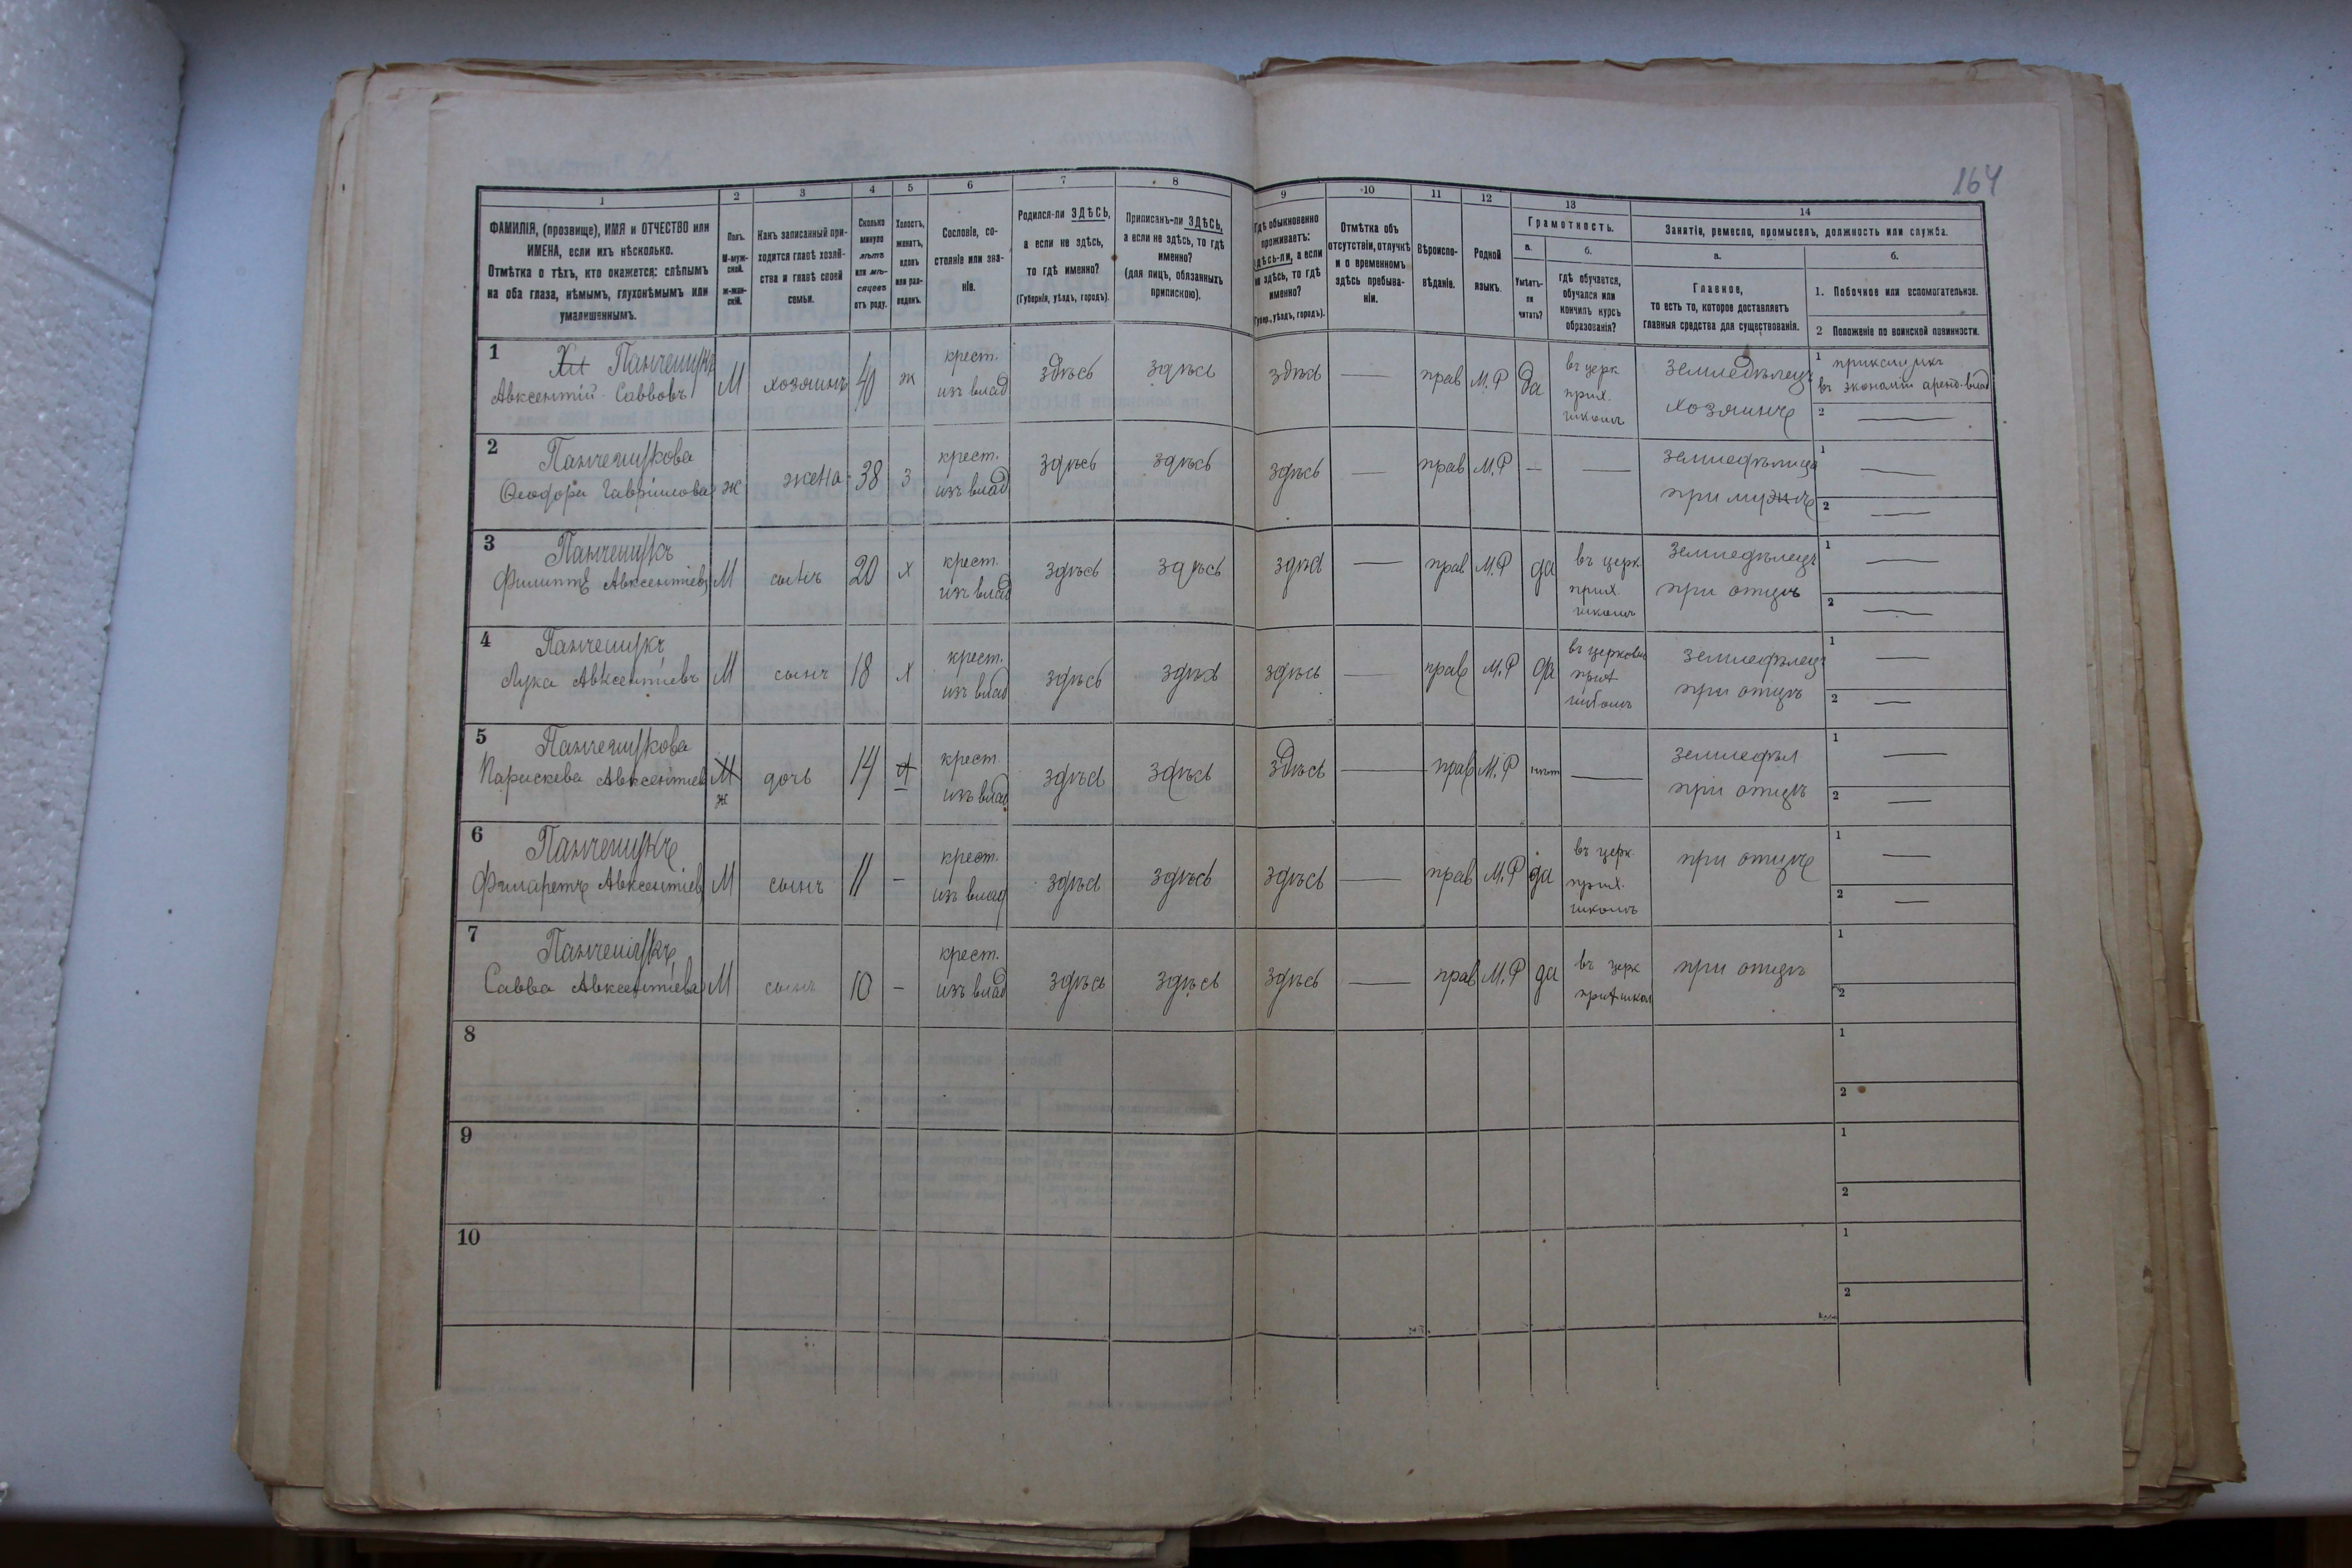 164
1
2
3
4
5
6
7
8
9
10
11
12
13
14
ФАМИЛІЯ, (прозвище), ИМЯ и ОТЧЕСТВО или
ИМЕНА, если ихъ нѣсколько.
Отмѣтка о тѣхъ, кто окажется: слѣпымъ
на оба глаза, нѣмымъ, глухонѣмымъ или
умалишеннымъ.
Полъ.
М-муж-
ской.
Ж-жен-
скій.
Какъ записанный при-
ходится главѣ хозяй-
ства и главѣ своей
семьи.
Сколько
минуло
лѣтъ
или мѣ-
сяцевъ
отъ роду.
Холостъ,
женатъ,
вдовъ
или раз-
веденъ.
Сословіе, со-
стояніе или зва-
ніе.
Родился-ли ЗДѢСЬ,
а если не здѣсь,
то гдѣ именно?
(Губернія, уѣздъ, городъ).
Приписанъ-ли ЗДѢСЬ,
а если не здѣсь, то гдѣ
именно?
(для лицъ, обязанныхъ
припискою).
Гдѣ обыкновенно
проживаетъ:
здѣсь-ли, а если
не здѣсь, то гдѣ
именно?
(Губер., уѣздъ, городъ).
Отмѣтка объ
отсутствіи, отлучкѣ
и о временномъ
здѣсь пребыва-
ніи.
Вѣроиспо-
вѣданіе.
Родной
языкъ.
Грамотность.
а.
Умѣетъ-
ли
читать?
б.
гдѣ обучается,
обучался или
кончилъ курсъ
образованія?
Занятіе, ремесло, промыселъ, должность или служба.
а.
Главное,
то есть то, которое доставляетъ
главныя средства для существованія.
б.
1. Побочное или вспомогательное.
2 Положеніе по воинской повинности.
1 Панчешукъ М хозяинъ 40 ж крест. здѣсь здѣсь здѣсь — прав М.Р да въ церк земледѣлецъ 1 прикащикъ
Авксентій Саввовъ изъ влад прих. хозяинъ въ экономіи аренд. влад
школѣ 2 —
2 Панчешукова ж жена 38 з крест. здѣсь здѣсь здѣсь — прав М.Р — — земледѣлица 1 —
Феодора Гавріилова изъ влад при мужѣ 2 —
3 Панчешукъ М сынъ 20 х крест. здѣсь здѣсь здѣсь — прав М.Р да въ церк земледѣлецъ 1 —
Филиппъ Авксентіевъ изъ влад прих. при отцѣ
школѣ 2 —
4 Панчешукъ М сынъ 18 х крест. здѣсь здѣсь здѣсь — прав М.Р да въ церковн земледѣлецъ 1 —
Лука Авксентіевъ изъ влад прих при отцѣ
школѣ 2 —
5 Панчешукова М дочь 14 х крест здѣсь здѣсь здѣсь — прав М.Р нѣт — земледѣл 1 —
Параскева Авксентіев ж изъ влад при отцѣ 2 —
6 Панчешукъ М сынъ 11 - крест. здѣсь здѣсь здѣсь — прав М.Р да въ церк. при отцѣ 1 —
Филаретъ Авксентіевъ изъ влад прих.
школѣ 2 —
7 Панчешукъ М сынъ 10 - крест. здѣсь здѣсь здѣсь — прав М.Р да въ церк при отцѣ 1
Савва Авксентіевъ изъ влад прих школ 2
8 1
2
9 1
2
10 1
2